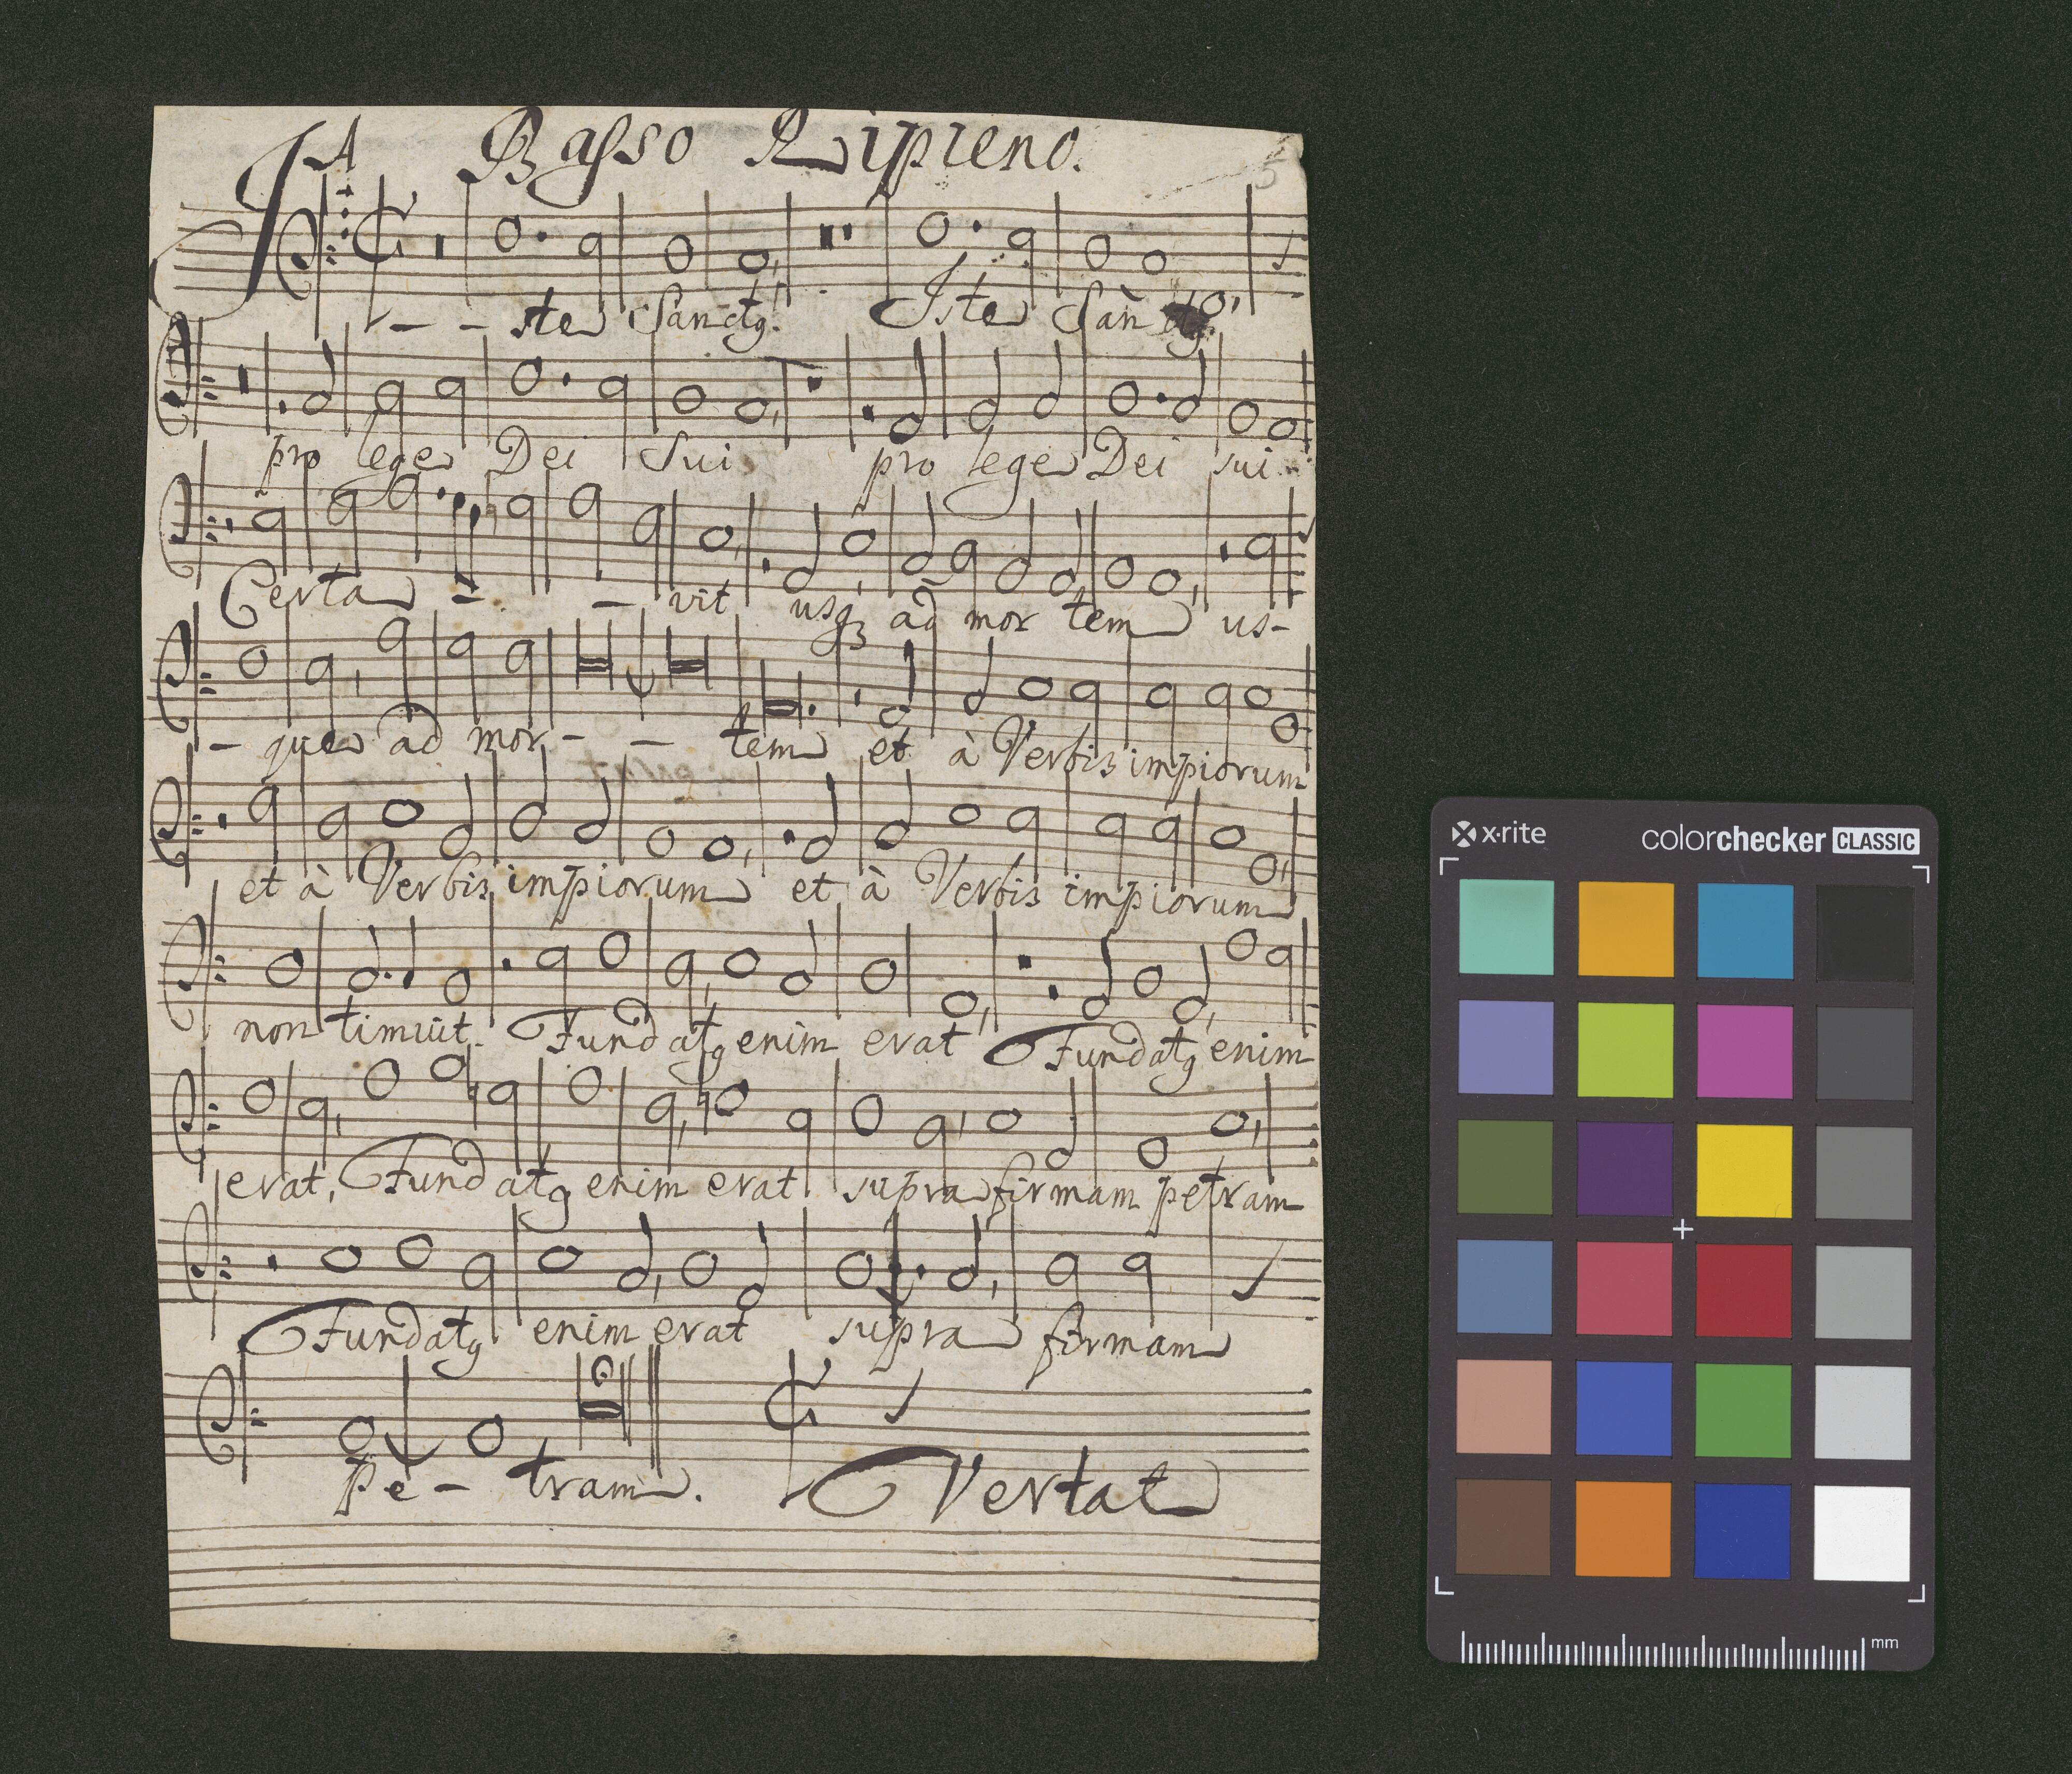 A Basso Ripieno.
5
I - - ste Sanctꝯ. Iste San̄ctꝯ.
pro lege Dei Sui pro lege Dei sui.
Certa - - vit usqꝫ ad mor tem us-
- que ad mor - - tem et à Verbis impiorum
et à Verbis impiorum et à Verbis impiorum
non timuit. Fundatꝯ enim erat Fundatꝯ enim
erat, Fundatꝯ enim erat supra firmam petram
Fundatꝯ enim erat supra firmam
Pe - tram. Vertat
x·rite colorchecker CLASSIC
mm